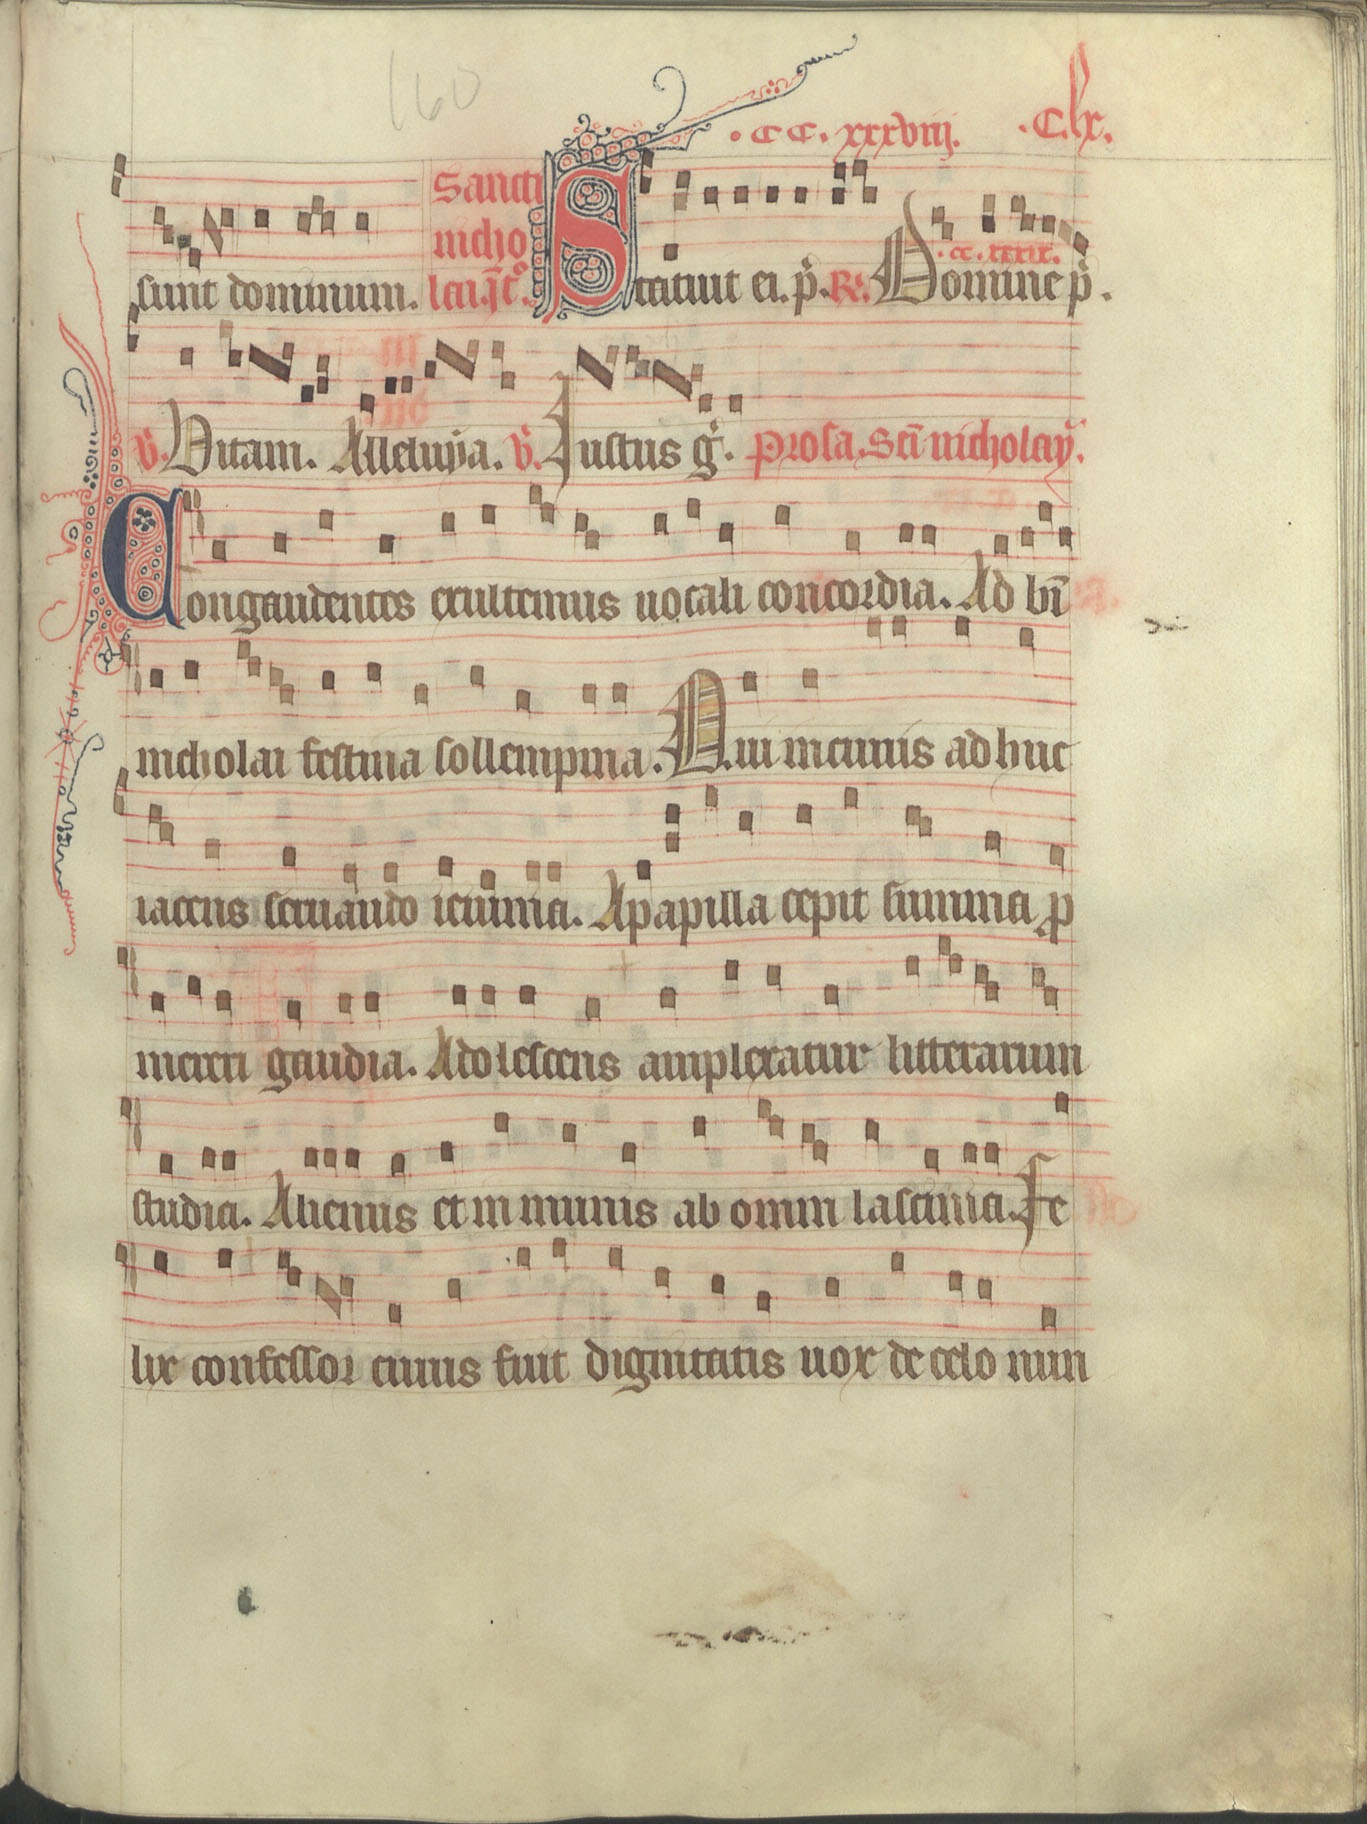 160
.CC.xxxviij. .C.lx.
Sancti
nicho
sunt dominum. lai. Statuit ei. p̄. R̄. Domine p̄.
.cc.xxxix.
v̄. Vitam. Alleluya. v̄. Iustus g̾. Prosa. Sc̄i nicholay.
Congaudentes exultemus uocali concordia. Ad bī
nicholai festiua sollempnia. Qui in cunis ad huc
iacens seruando ieiunia. A papilla cepit summa ꝓ
mereri gaudia. Adolescens amplexatur litterarum
studia. Alienus et inmunis ab omni lasciuia. Fe
lix confessor cuius fuit dignitatis uox de celo nun